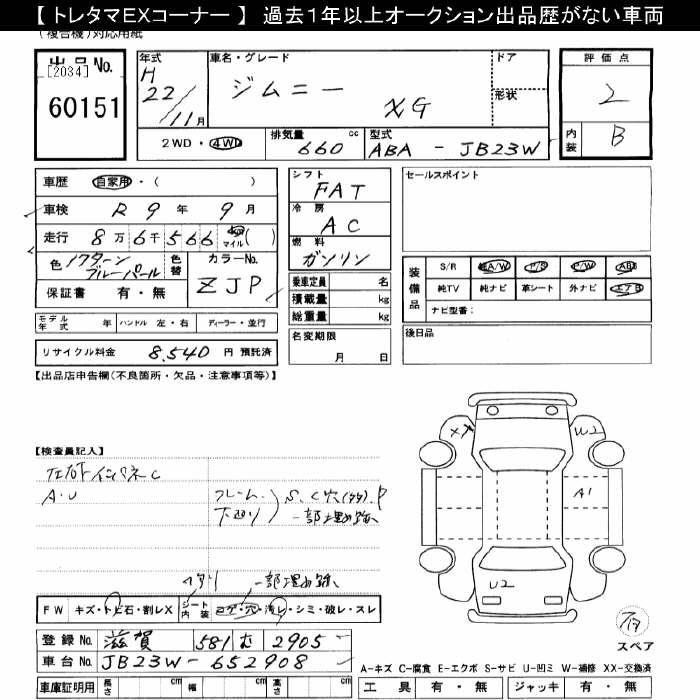 【 トレタマEXコーナー 】 過去1年以上オークション出品歴がない車両
(複合機)対応用紙
出品No.
[2034]
60151
年式
H
22/11月
車名・グレード
ジムニー
XG
ドア
形状
評価点
2
内装
B
2WD・4WD
排気量
660 cc
型式
ABA - JB23W
車歴 自家用・( )
車検 R 9年 9月
走行 8万6千566 km マイル( )
色 ノクターンブルーパール
色替
カラーNo.
ZJP
保証書 有・無
シフト
FAT
冷房
AC
燃料
ガソリン
乗車定員 名
積載量 kg
総重量 kg
名変期限
月 日
セールスポイント
装備品
S/R 純A/W P/S P/W ABS
純TV 純ナビ 革シート 外ナビ エアB
ナビ型番：
後日品
モデル年式 年 ハンドル 左・右 ディーラー・並行
リサイクル料金 8,540 円 預託済
【出品店申告欄(不良箇所・欠品・注意事項等)】
【検査員記入】
インパネC
A.U
フレーム
下廻り
S、C穴
一部埋め跡
XX
W2
A1
U2
一部埋め跡
FW キズ・トビ石・割レX
シート内装
コゲ・穴・汚レ・シミ・破レ・スレ
登録No. 滋賀 581 む 2905
車台No. JB23W-652908
車庫証明用 長さ cm 幅 cm 高さ cm
スペア
A-キズ C-腐食 E-エクボ S-サビ U-凹ミ W-補修 XX-交換済
工具 有・無 ジャッキ 有・無